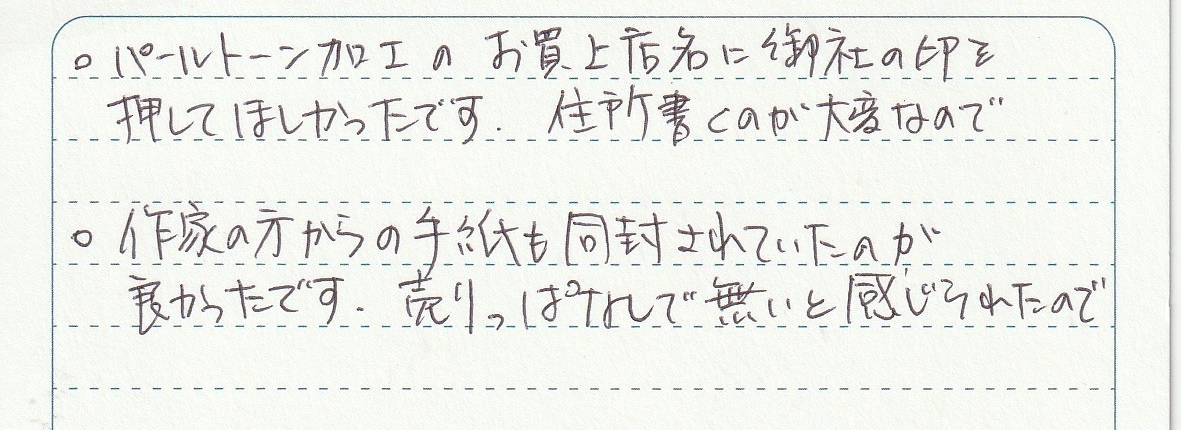 ○ パールトーン加工の お買上店名に御社の印を
押してほしかったです. 住所書くのが大変なので
○ 作家の方からの手紙も同封されていたのが
良かったです. 売りっぱなしで無いと感じられたので